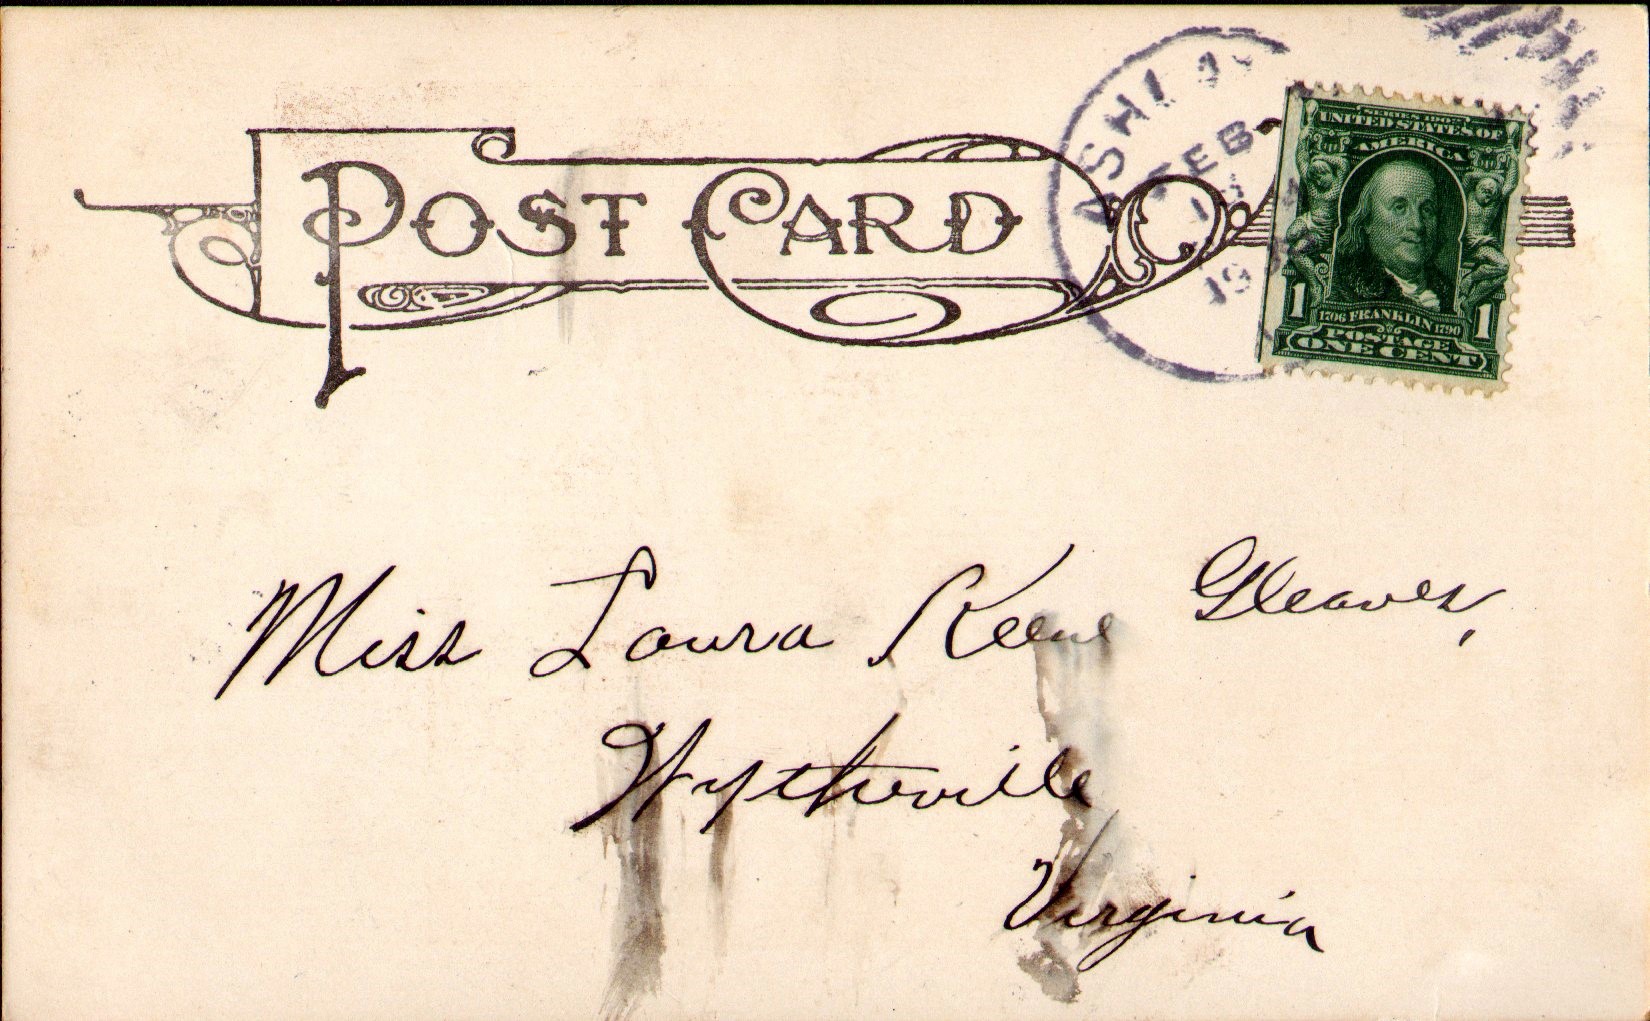 POST CARD
FEB
SERIES 1902
UNITED STATES OF
AMERICA
1 1
1706 FRANKLIN 1790
POSTAGE
ONE CENT
Miss Laura Keene Gleaves,
Wytheville
Virginia